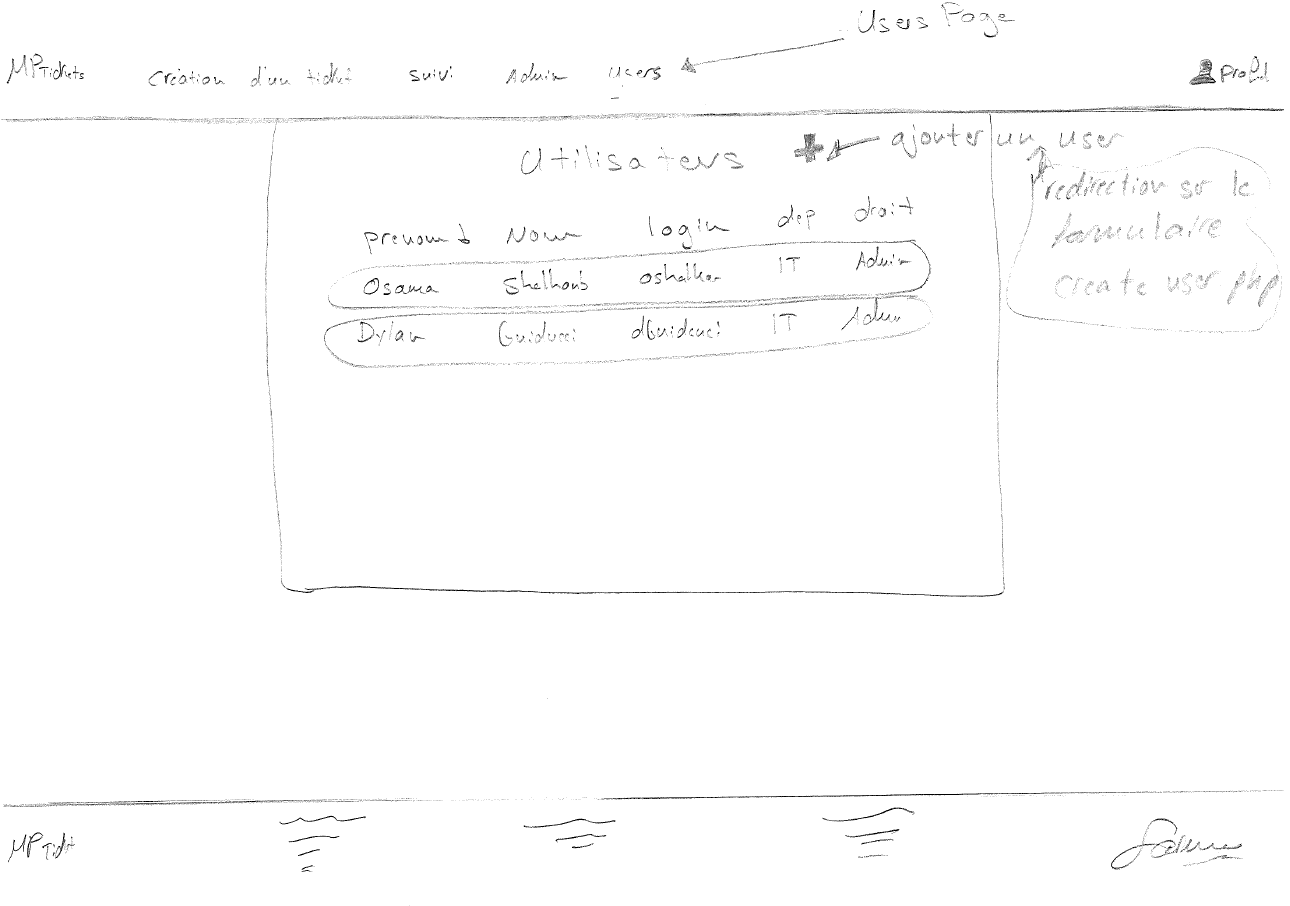 Users Page
MPTickets création d'un ticket suivi Admin Users Profil
Utilisateurs + ajouter un user
redirection sur le
formulaire
create user php
prenom Nom login dep droit
Osama IT Admin
Dylan Guiducci IT Admin
MPTickt